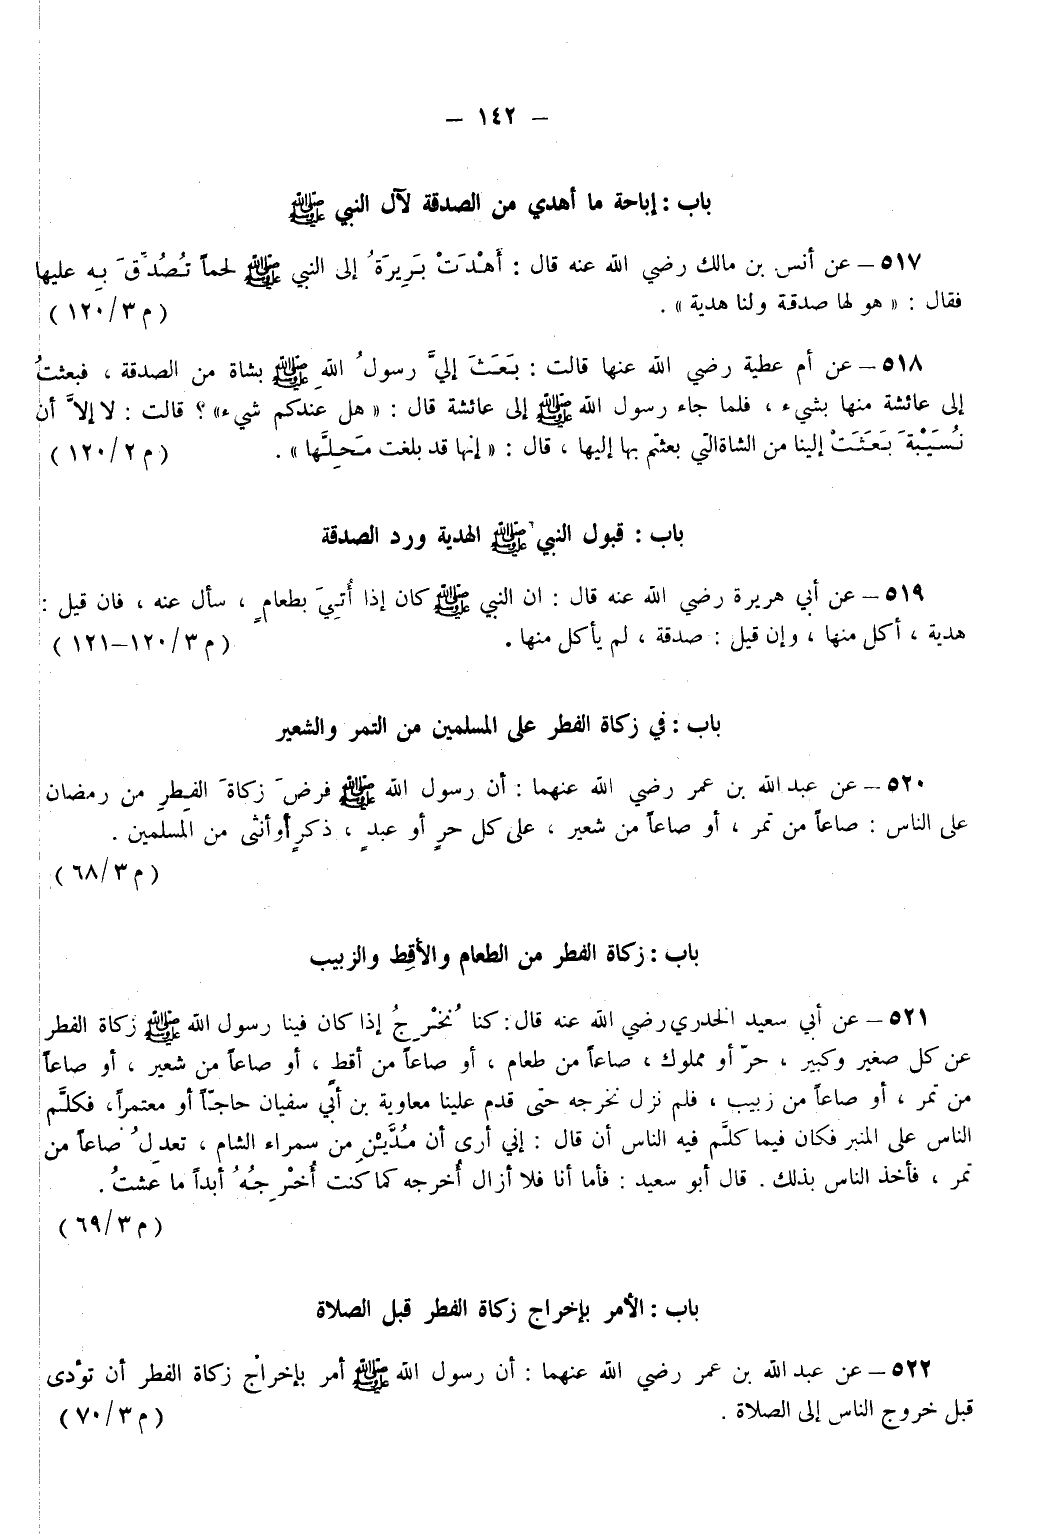 – ١٤٢ –
باب : إباحة ما أهدي من الصدقة لآل النبي ﷺ
٥١٧ – عن أنس بن مالك رضي الله عنه قال : أَهْدَتْ بَرِيرَةُ إلى النبي ﷺ لحماً تُصُدِّقَ بِه عليها
فقال : « هو لها صدقة ولنا هدية » . ( م ٣/١٢٠ )
٥١٨ – عن أم عطية رضي الله عنها قالت : بَعَثَ إليَّ رسولُ اللهِ ﷺ بشاة من الصدقة ، فبعثتُ
إلى عائشة منها بشيء ، فلما جاء رسول الله ﷺ إلى عائشة قال : « هل عندكم شيء » ؟ قالت : لا إلاَّ أن
نُسَيْبَةَ بَعَثَتْ إلينا من الشاة التي بعثتم بها إليها ، قال : « إنها قد بلغت مَحِلَّها » . ( م ٢/١٢٠ )
باب : قبول النبي ﷺ الهدية ورد الصدقة
٥١٩ – عن أبي هريرة رضي الله عنه قال : ان النبي ﷺ كان إذا أُتِيَ بطعامٍ ، سأل عنه ، فان قيل :
هدية ، أكل منها ، وإن قيل : صدقة ، لم يأكل منها . ( م ٣/١٢٠–١٢١ )
باب : في زكاة الفطر على المسلمين من التمر والشعير
٥٢٠ – عن عبد الله بن عمر رضي الله عنهما : أن رسول الله ﷺ فرضَ زكاةَ الفِطرِ من رمضان
على الناس : صاعاً من تمر ، أو صاعاً من شعير ، على كل حرٍ أو عبدٍ ، ذكرٍ أو أنثى من المسلمين .
( م ٣/٦٨ )
باب : زكاة الفطر من الطعام والأقِط والزبيب
٥٢١ – عن أبي سعيد الخدري رضي الله عنه قال : كنا نُخْرِجُ إذا كان فينا رسول الله ﷺ زكاة الفطر
عن كل صغير وكبير ، حرّ أو مملوك ، صاعاً من طعام ، أو صاعاً من أقطٍ ، أو صاعاً من شعير ، أو صاعاً
من تمر ، أو صاعاً من زبيب ، فلم نزل نخرجه حتى قدم علينا معاوية بن أبي سفيان حاجّاً أو معتمراً ، فكلَّم
الناس على المنبر فكان فيما كلَّم فيه الناس أن قال : إني أرى أن مُدَّيْنِ من سمراء الشام ، تعدِلُ صاعاً من
تمر ، فأخذ الناس بذلك . قال أبو سعيد : فأما أنا فلا أزال أُخرجه كما كنت أُخْرِجُهُ أبداً ما عشتُ .
( م ٣/٦٩ )
باب : الأمر بإخراج زكاة الفطر قبل الصلاة
٥٢٢ – عن عبد الله بن عمر رضي الله عنهما : أن رسول الله ﷺ أمر بإخراج زكاة الفطر أن تؤدى
قبل خروج الناس إلى الصلاة . ( م ٣/٧٠ )